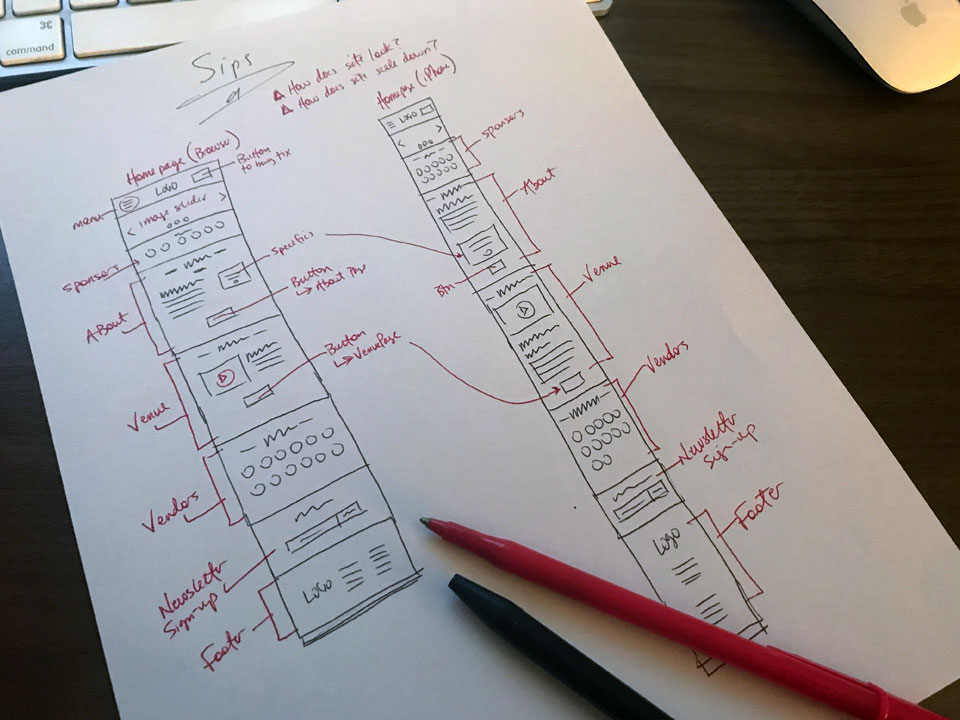 ⌘
command
Sips
How does site look?
How does site scale down?
Homepage (Browser)
LOGO
Button
to buy tix
menu
image slider
sponsors
About
specifics
Button
↳ About Page
Venue
Button
↳ Venue Page
Vendors
Newsletter
Sign-up
LOGO
Footer
Homepage (iPhone)
LOGO
sponsors
About
Btn
Venue
Vendors
Newsletter
Sign-up
LOGO
Footer